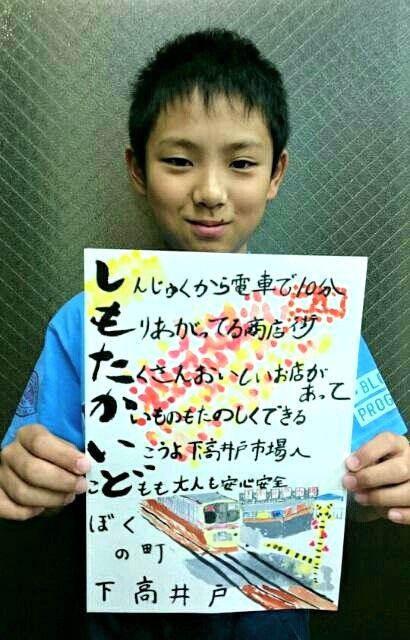 しんじゅくから電車で10分、
もりあがってる商店街
たくさんおいしいお店があって
かいものもたのしくできる
いこうよ下高井戸市場へ
こどもも大人も安心安全
ぼく
の町
下高井戸
BL
PROG